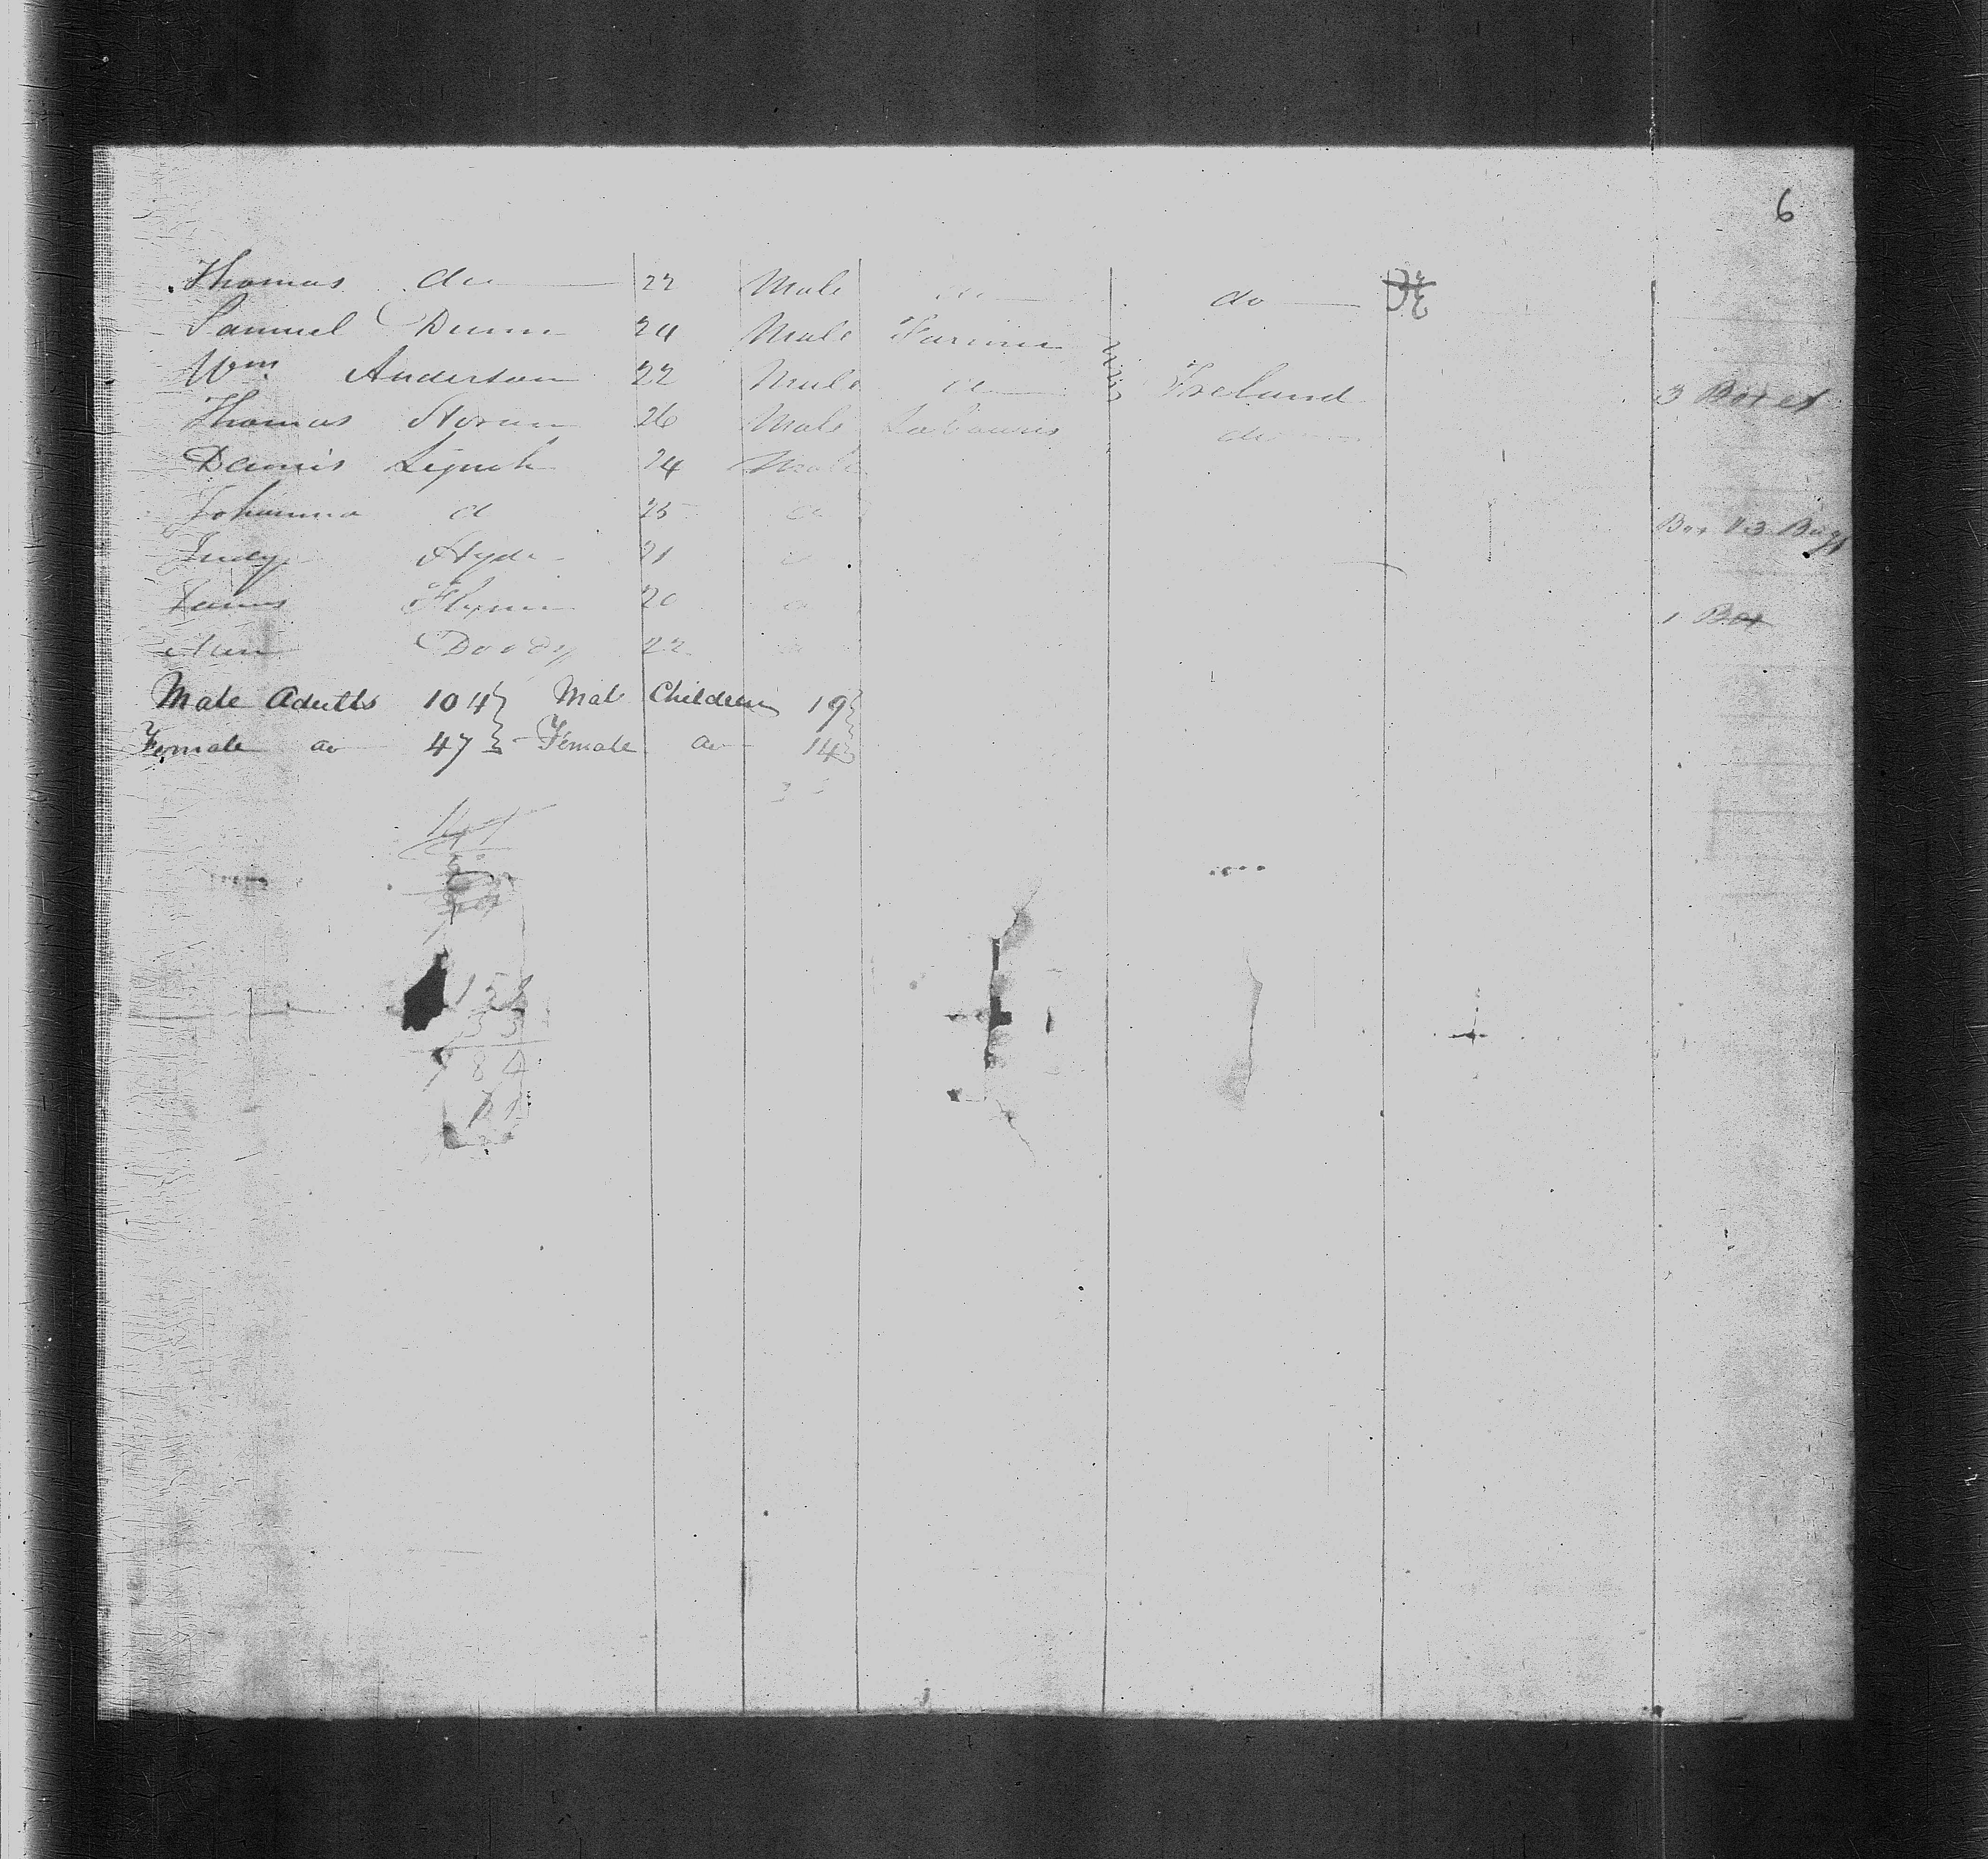 6
Thomas do 22 Male do do
Samuel Dunn 24 Male Farmer
Wm Anderson 22 Male do Ireland 3 Boxes
Thomas Horan 26 Male Labourer do
Dennis Lynch 24 Male
Johanna d 25 d Box & 3 Bags
Judy Hyde 21 d
James Flynn 20 d 1 Box
Ann Doody 22 d
Male Adults 104 Male Children 19
Female do 47 Female do 14
33
151
33
184